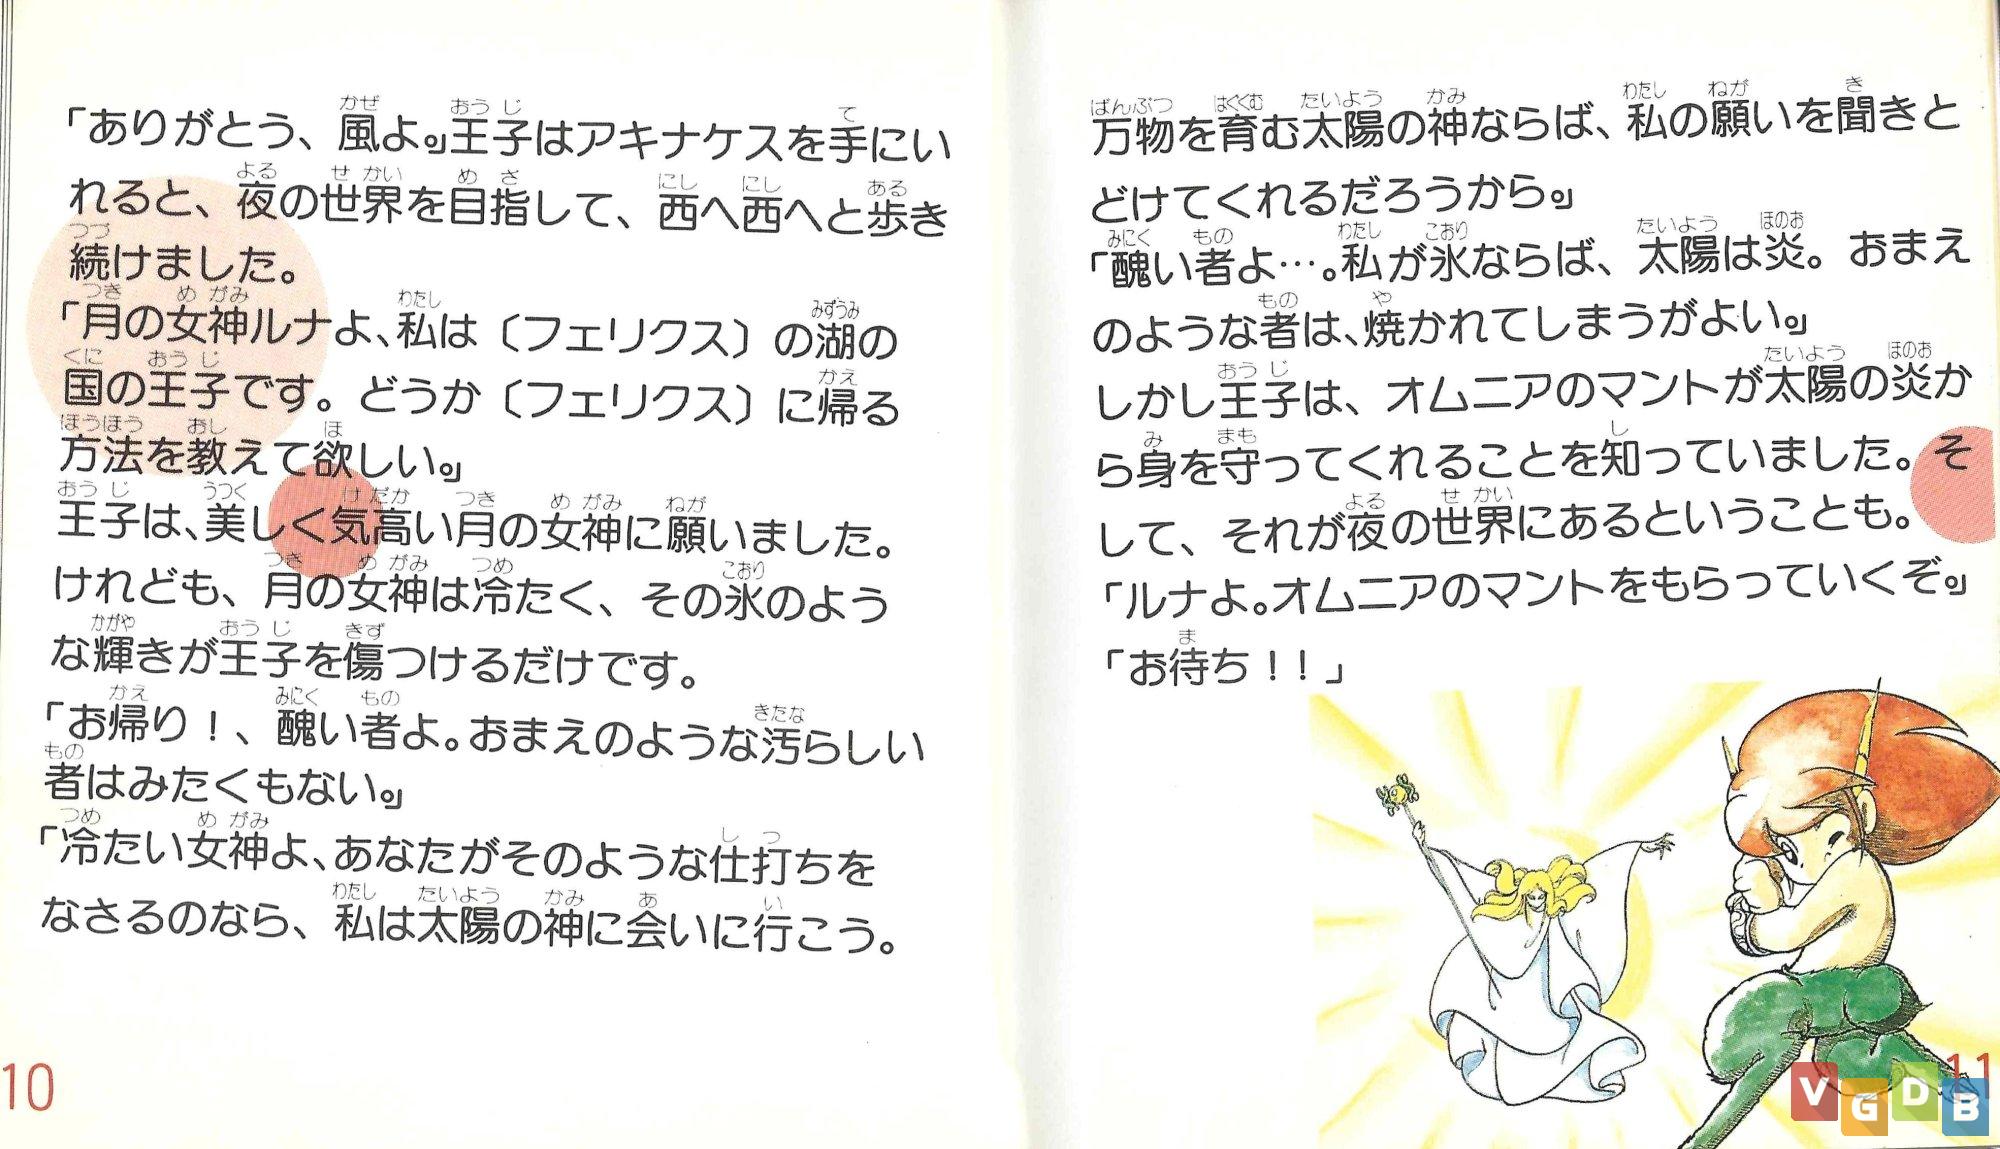 「ありがとう、風よ。」王子はアキナケスを手にい
れると、夜の世界を目指して、西へ西へと歩き
続けました。
「月の女神ルナよ、私は〔フェリクス〕の湖の
国の王子です。どうか〔フェリクス〕に帰る
方法を教えて欲しい。」
王子は、美しく気高い月の女神に願いました。
けれども、月の女神は冷たく、その氷のよう
な輝きが王子を傷つけるだけです。
「お帰り！、醜い者よ。おまえのような汚らしい
者はみたくもない。」
「冷たい女神よ、あなたがそのような仕打ちを
なさるのなら、私は太陽の神に会いに行こう。
10
万物を育む太陽の神ならば、私の願いを聞きと
どけてくれるだろうから。」
「醜い者よ…。私が氷ならば、太陽は炎。おまえ
のような者は、焼かれてしまうがよい。」
しかし王子は、オムニアのマントが太陽の炎か
ら身を守ってくれることを知っていました。そ
して、それが夜の世界にあるということも。
「ルナよ。オムニアのマントをもらっていくぞ。」
「お待ち！！」
11
VGDB